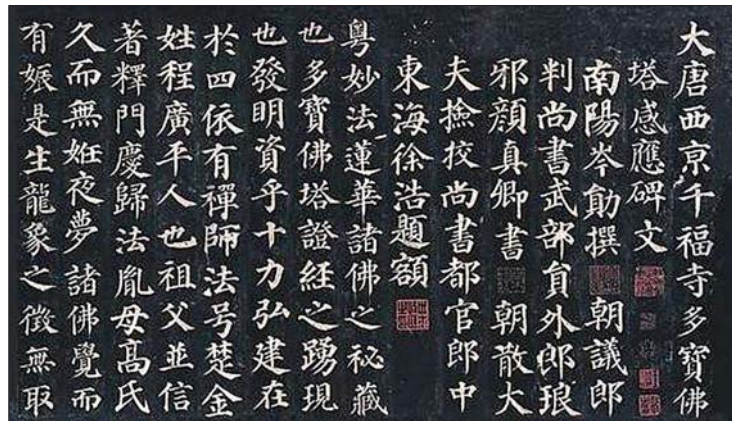 大唐西京千福寺多寶佛
塔感應碑文
南陽岑勛撰 朝議郎
判尚書武部員外郎琅
邪顏真卿書 朝散大
夫撿挍尚書都官郎中
東海徐浩題額
粵妙法蓮華諸佛之秘藏
也多寶佛塔證経之踴現
也發明資乎十力弘建在
於四依有禪師法号楚金
姓程廣平人也祖父並信
著釋門慶歸法胤母高氏
久而無姙夜夢諸佛覺而
有娠是生龍象之徵無取